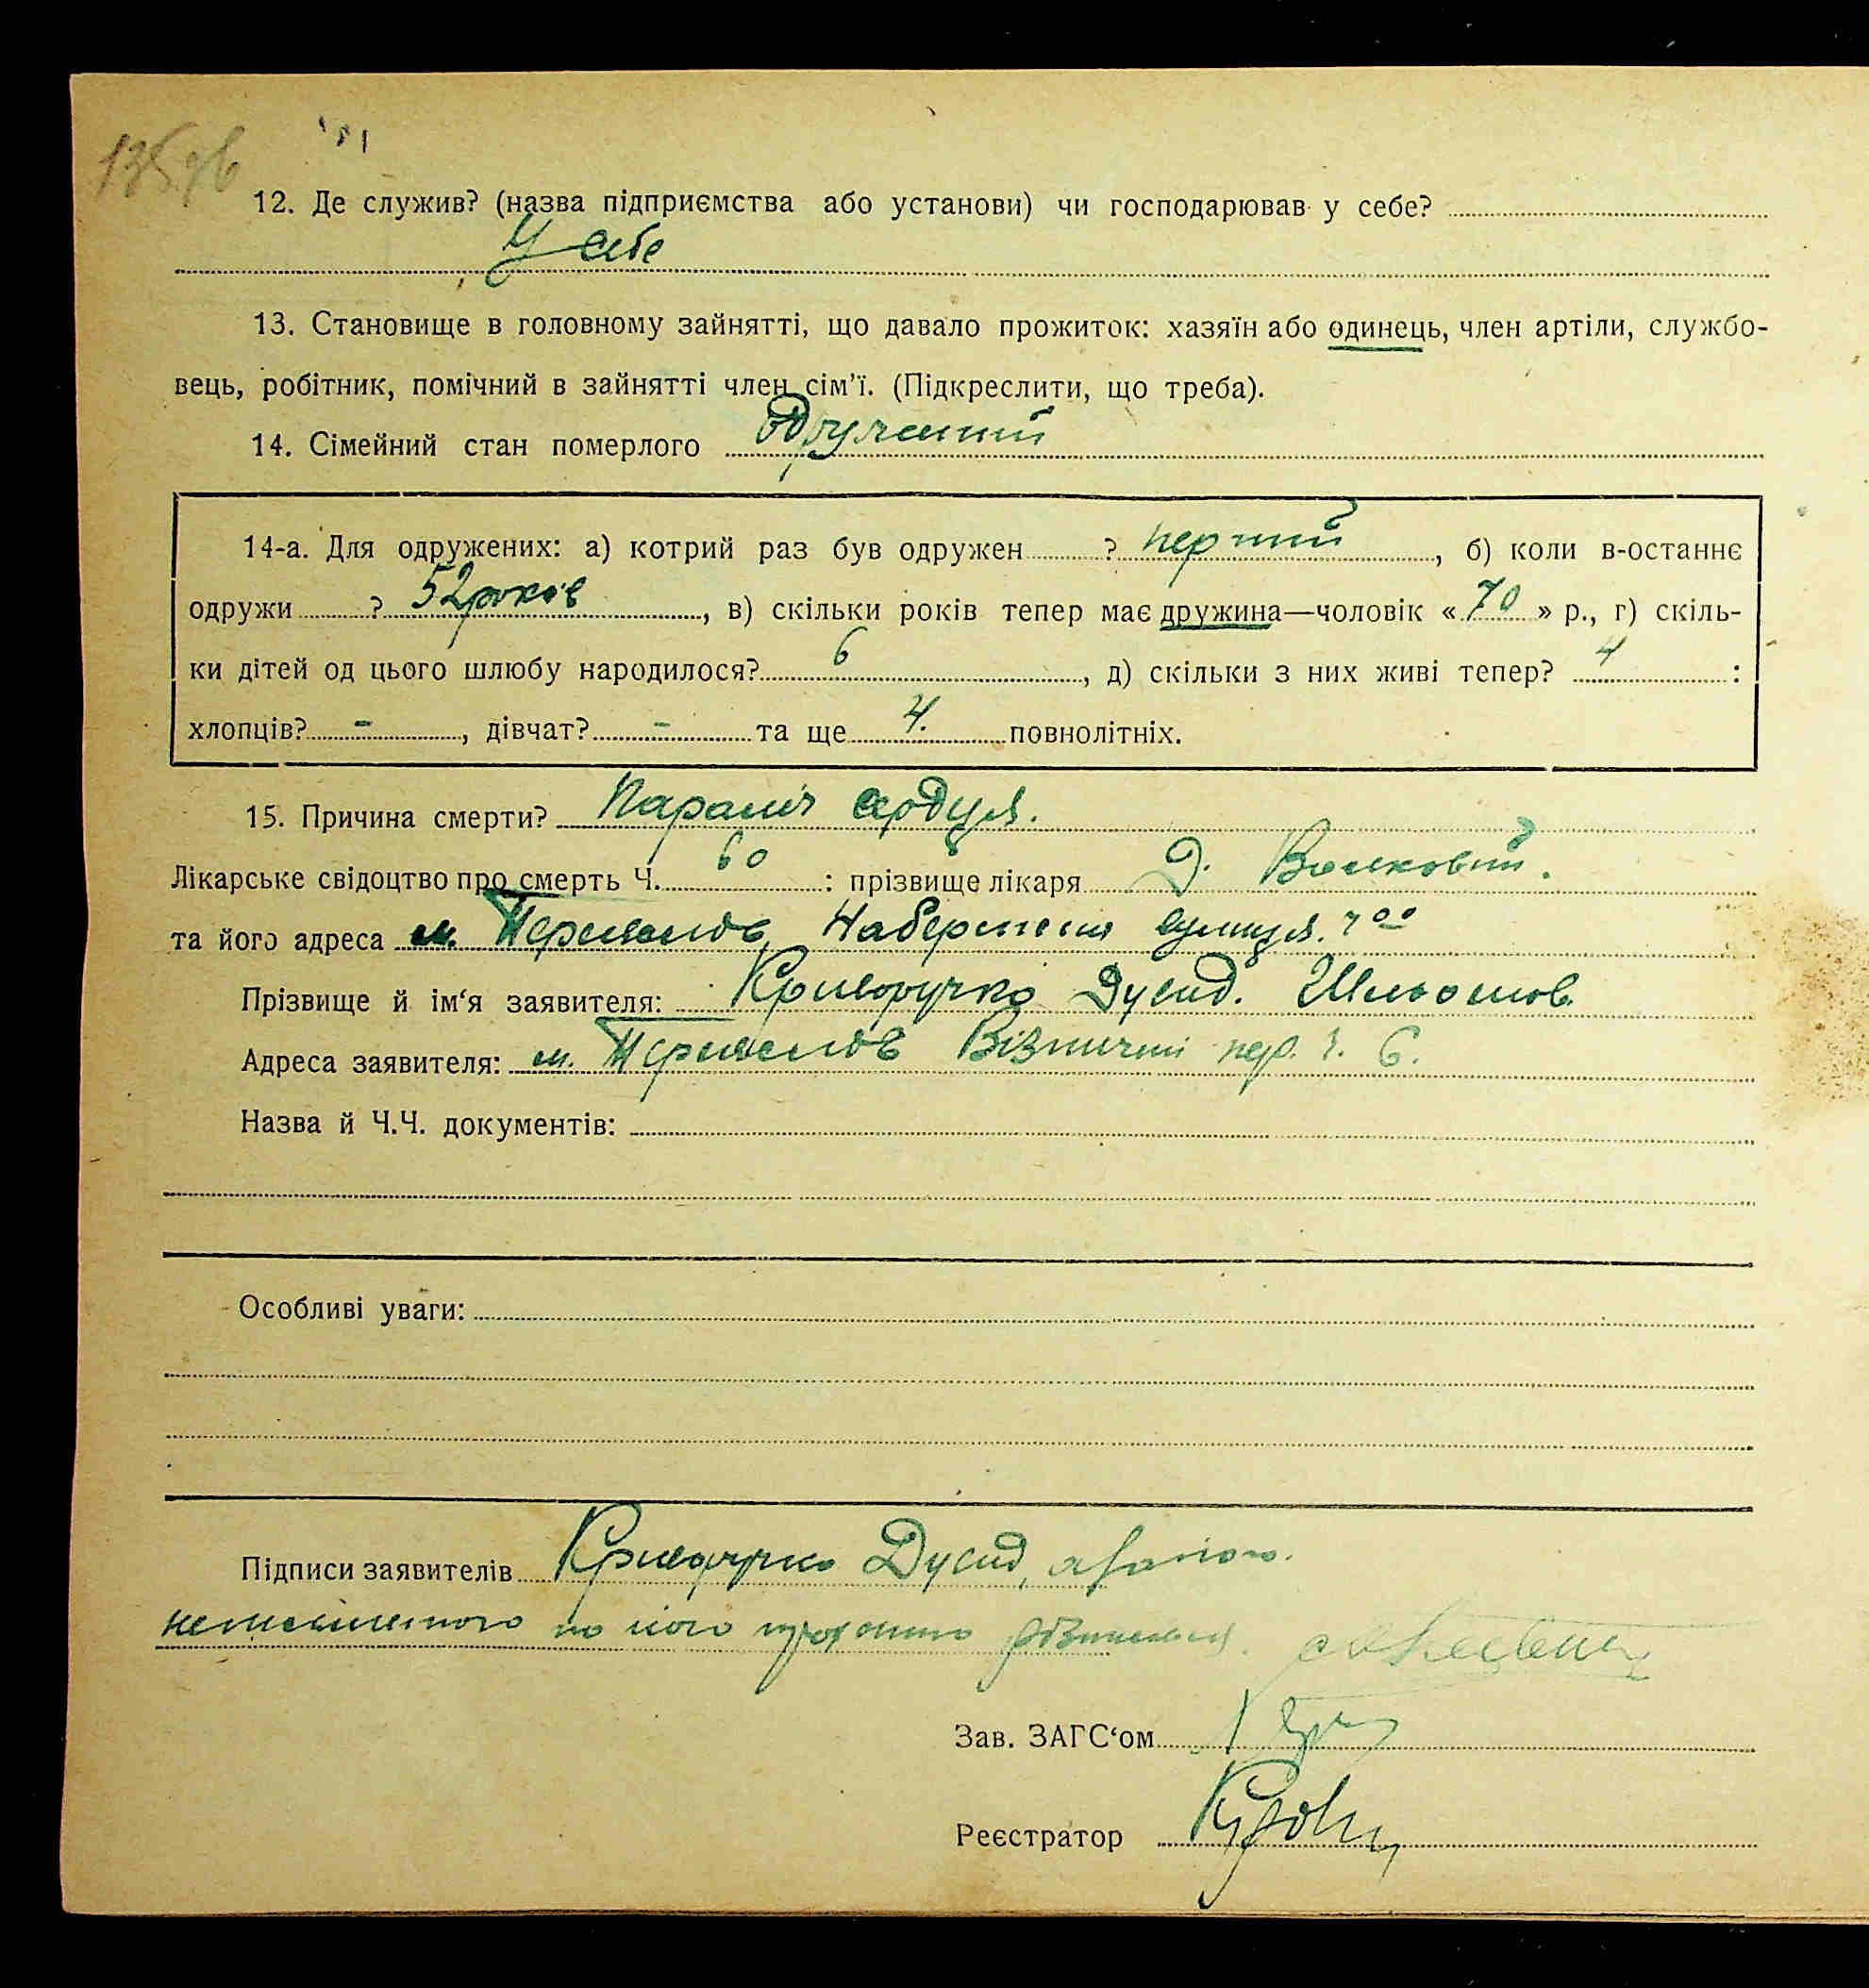 12. Де служив? (назва підприємства або установи) чи господарював у себе?
У себе
13. Становище в головному зайнятті, що давало прожиток: хазяїн або одинець, член артіли, службо-
вець, робітник, помічний в зайнятті член сім'ї. (Підкреслити, що треба).
14. Сімейний стан померлого одружений
14-а. Для одружених: а) котрий раз був одружен ? перший, б) коли в-останнє
одружи ? 52 років, в) скільки років тепер має дружина—чоловік «70» р., г) скіль-
ки дітей од цього шлюбу народилося? 6, д) скільки з них живі тепер? 4 :
хлопців? -, дівчат? - та ще 4. повнолітніх.
15. Причина смерти? Параліч сердця.
Лікарське свідоцтво про смерть Ч. 60 : прізвище лікаря Д.
та його адреса м. вулиця.
Прізвище й ім'я заявителя: Криворучко Дусид.
Адреса заявителя: м. Візничий пер. ч. 6.
Назва й Ч.Ч. документів:
Особливі уваги:
Підписи заявителів Криворучко Дусид, а за
неписьменного по його
Зав. ЗАГС'ом
Реєстратор